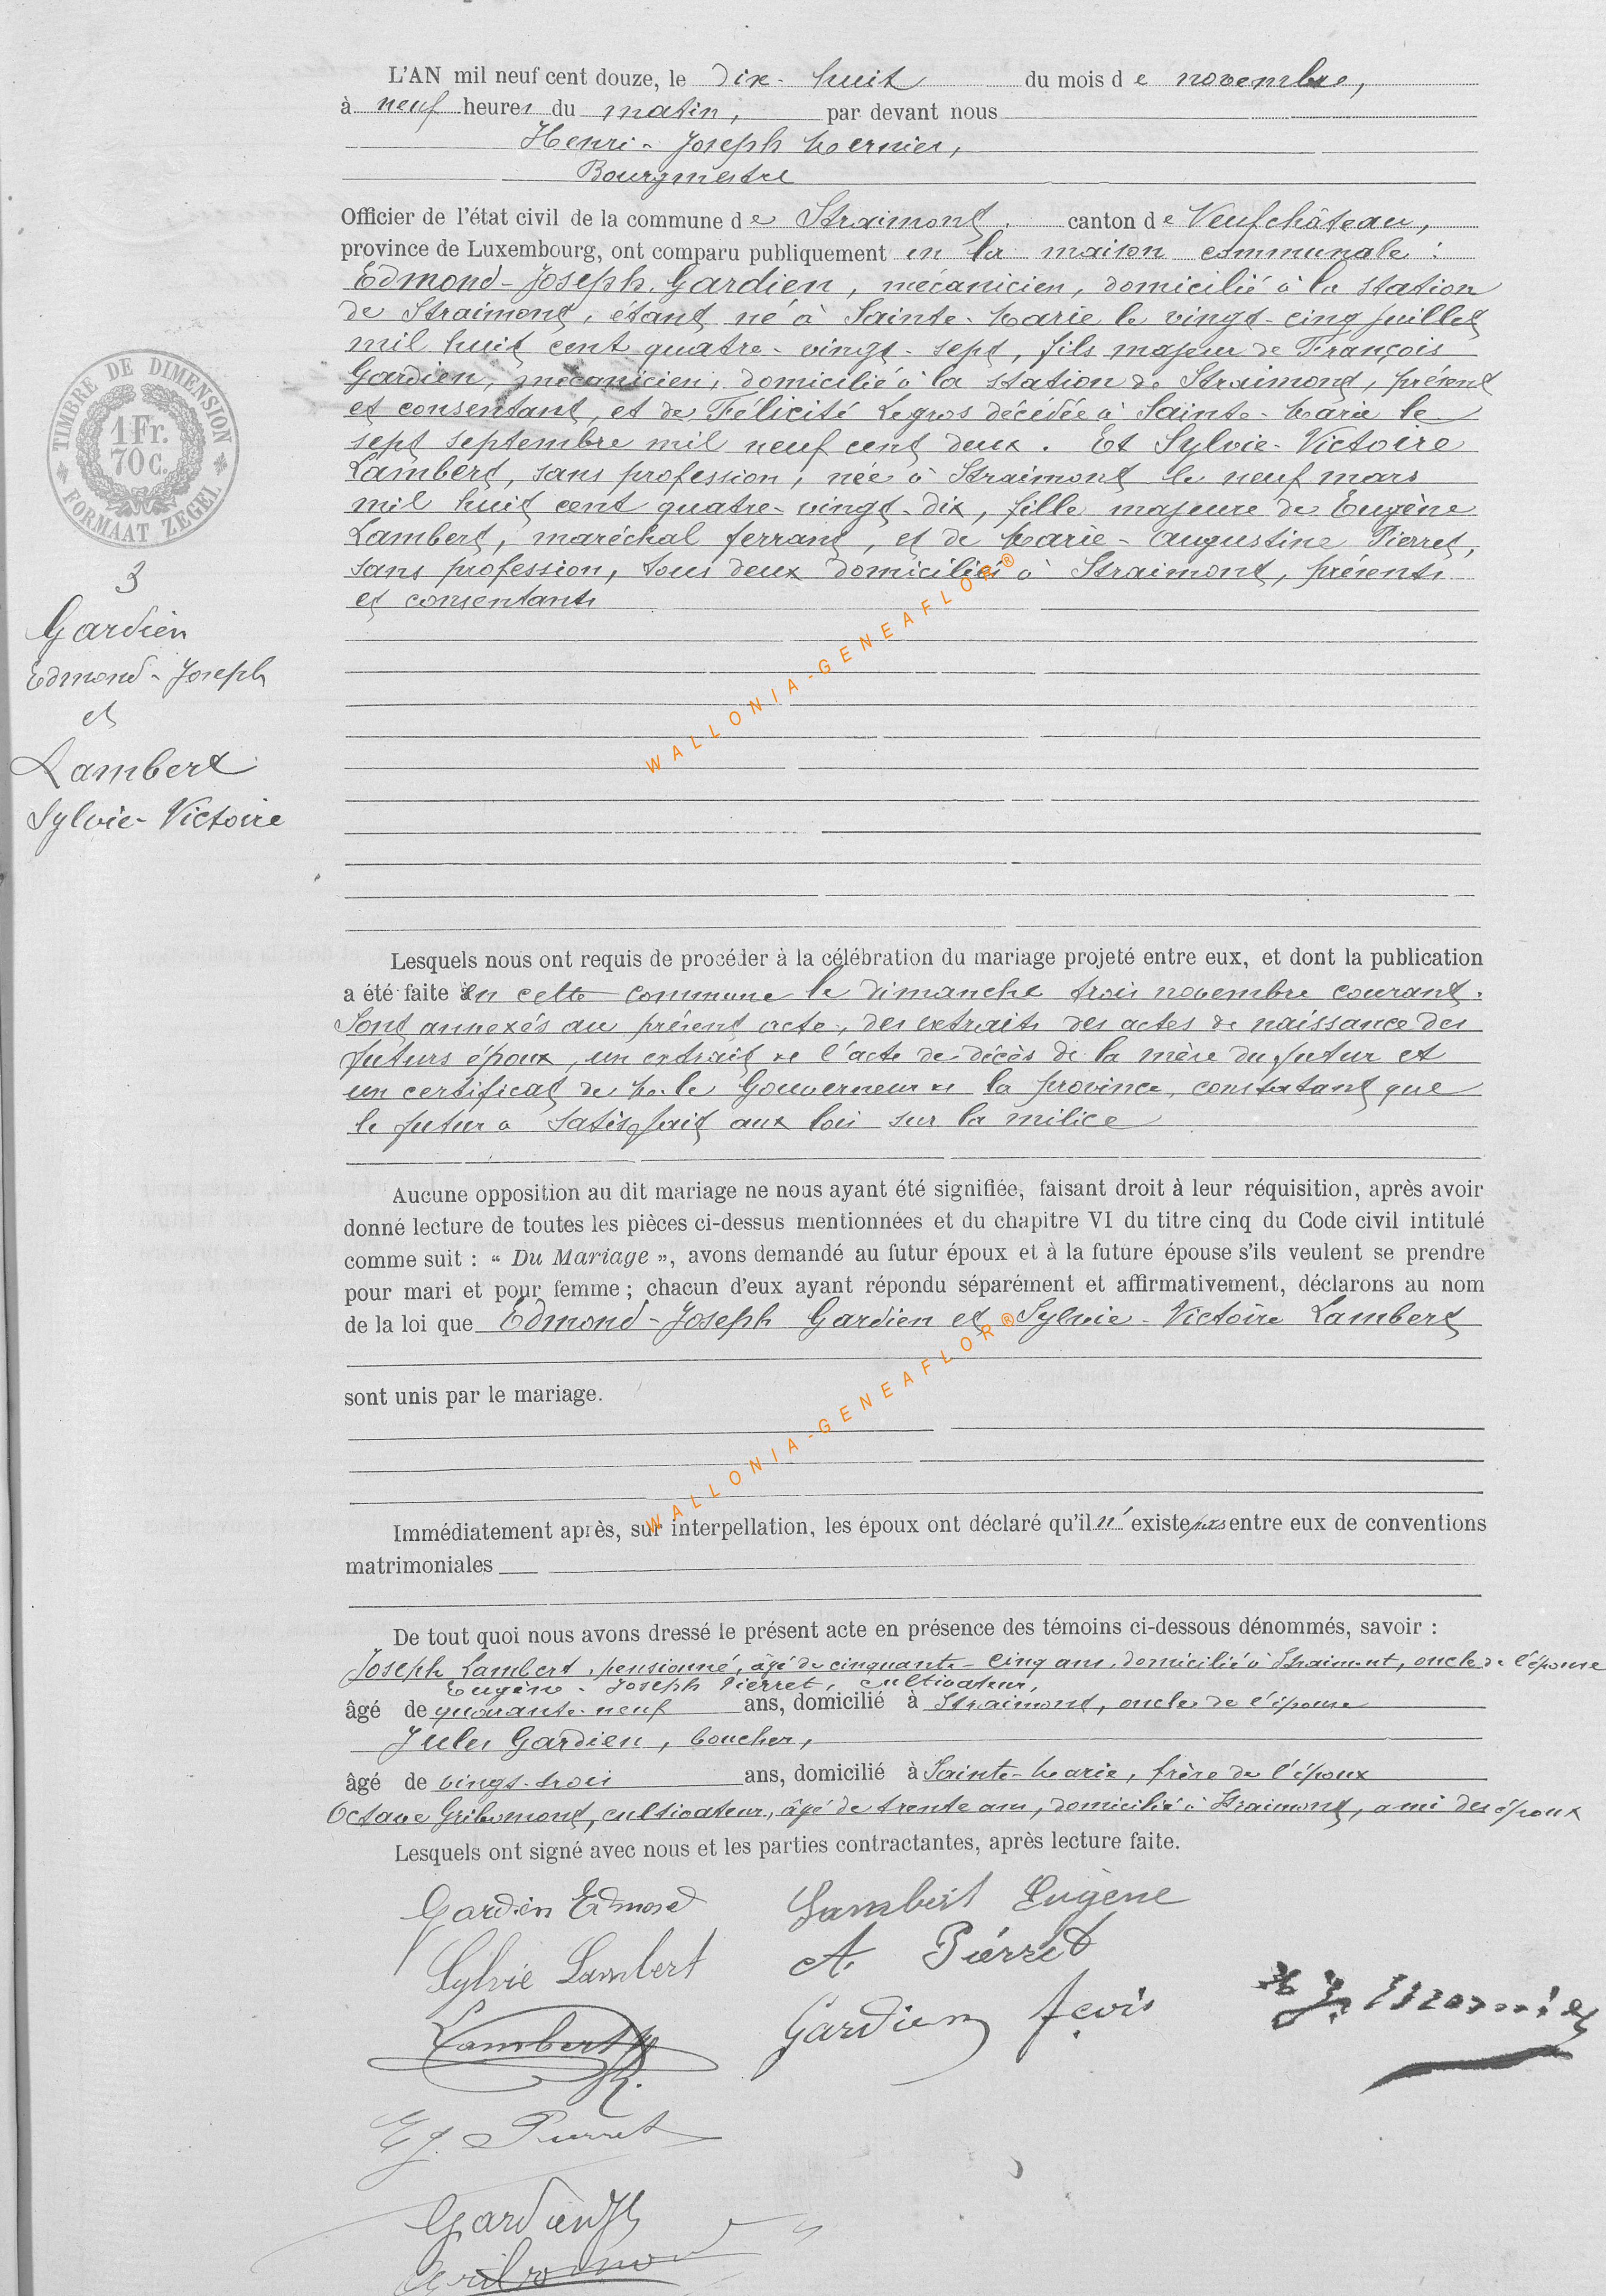 L'AN mil neuf cent douze, le dix-huit du mois de novembre,
à neuf heures du matin, par devant nous
Henri-Joseph Mernier,
Bourgmestre
Officier de l'état civil de la commune de Straimont, canton de Neufchâteau,
province de Luxembourg, ont comparu publiquement en la maison communale :
Edmond-Joseph Gardien, mécanicien, domicilié à la station
de Straimont, étant né à Sainte-Marie le vingt-cinq juillet
mil huit cent quatre-vingt-sept, fils majeur de François
Gardien, mécanicien, domicilié à la station de Straimont, présent
et consentant, et de Félicité Legros décédée à Sainte-Marie le
sept septembre mil neuf cent deux. Et Sylvie-Victoire
Lambert, sans profession, née à Straimont le neuf mars
mil huit cent quatre-vingt-dix, fille majeure de Eugène
Lambert, maréchal ferrant, et de Marie-Augustine Pierret,
sans profession, tous deux domiciliés à Straimont, présents
et consentants
TIMBRE DE DIMENSION
1 Fr.
70 C.
FORMAAT ZEGEL
3
Gardien
Edmond-Joseph
et
Lambert
Sylvie-Victoire
WALLONIA-GENEAFLOR®
Lesquels nous ont requis de procéder à la célébration du mariage projeté entre eux, et dont la publication
a été faite en cette commune le dimanche trois novembre courant.
Sont annexés au présent acte, des extraits des actes de naissance des
futurs époux, un extrait de l'acte de décès de la mère du futur et
un certificat de M. le Gouverneur de la province, constatant que
le futur a satisfait aux lois sur la milice
Aucune opposition au dit mariage ne nous ayant été signifiée, faisant droit à leur réquisition, après avoir
donné lecture de toutes les pièces ci-dessus mentionnées et du chapitre VI du titre cinq du Code civil intitulé
comme suit : « Du Mariage », avons demandé au futur époux et à la future épouse s'ils veulent se prendre
pour mari et pour femme ; chacun d'eux ayant répondu séparément et affirmativement, déclarons au nom
de la loi que Edmond-Joseph Gardien et Sylvie-Victoire Lambert
sont unis par le mariage.
WALLONIA-GENEAFLOR®
Immédiatement après, sur interpellation, les époux ont déclaré qu'il n'existe pas entre eux de conventions
matrimoniales
De tout quoi nous avons dressé le présent acte en présence des témoins ci-dessous dénommés, savoir :
Joseph Lambert, pensionné, âgé de cinquante-cinq ans, domicilié à Straimont, oncle de l'épouse
Eugène-Joseph Pierret, cultivateur,
âgé de quarante-neuf ans, domicilié à Straimont, oncle de l'épouse
Jules Gardien, boucher,
âgé de vingt-trois ans, domicilié à Sainte-Marie, frère de l'époux
Octave Gribomont, cultivateur, âgé de trente ans, domicilié à Straimont, ami des époux
Lesquels ont signé avec nous et les parties contractantes, après lecture faite.
Gardien Edmond Lambert Eugène
Sylvie Lambert A. Pierret
Lambert Gardien
H J Mernier
E J. Pierret
Gardien J
Gribomont